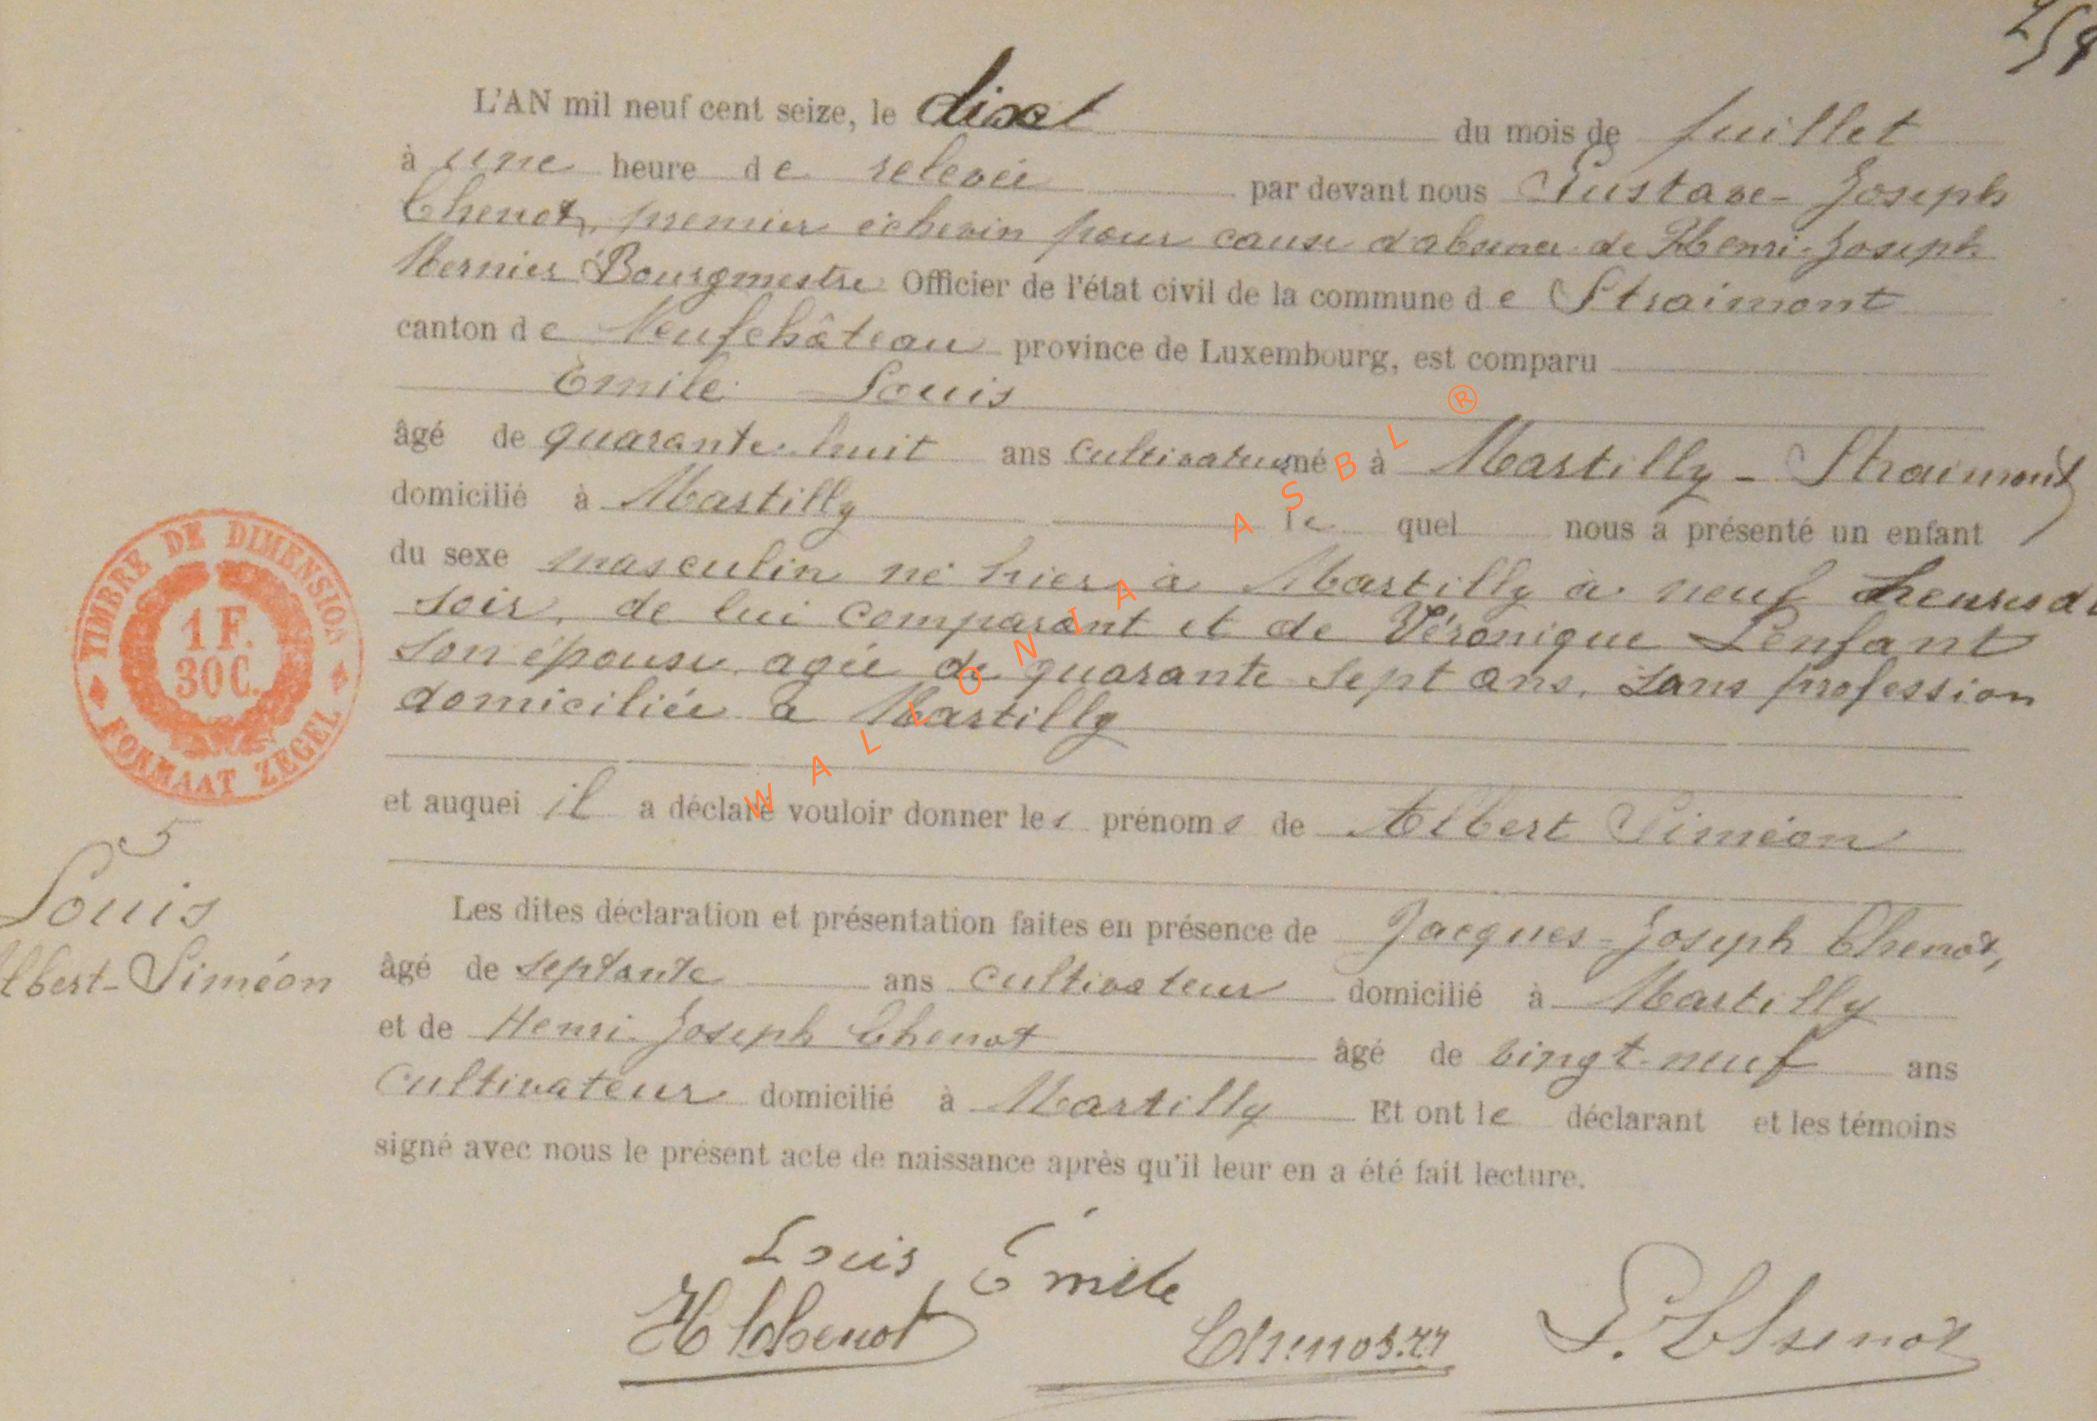 L'AN mil neuf cent seize, le dixet du mois de Juillet
à une heure de relevée par devant nous Gustave-Joseph
Chenot, premier échevin pour cause d'absence de Henri-Joseph
Mernier Bourgmestre Officier de l'état civil de la commune de Straimont
canton de Neufchâteau province de Luxembourg, est comparu
Emile Louis
âgé de quarante-huit ans cultivateur né à Martilly - Straimont
domicilié à Martilly le quel nous a présenté un enfant
du sexe masculin né hier à Martilly à neuf heures du
soir, de lui comparant et de Véronique Lenfant
son épouse agée de quarante sept ans, sans profession
domiciliée à Martilly
et auquel il a déclaré vouloir donner les prénoms de Albert Siméon
5
Louis
Albert-Siméon
Les dites déclaration et présentation faites en présence de Jacques-Joseph Chenot,
âgé de septante ans cultivateur domicilié à Martilly
et de Henri-Joseph Chenot âgé de vingt-neuf ans
cultivateur domicilié à Martilly Et ont le déclarant et les témoins
signé avec nous le présent acte de naissance après qu'il leur en a été fait lecture.
Louis Émile
H Chenot
G. Chenot
TIMBRE DE DIMENSION
1 F.
30 C.
FORMAAT ZEGEL
WALLONIA ASBL ®